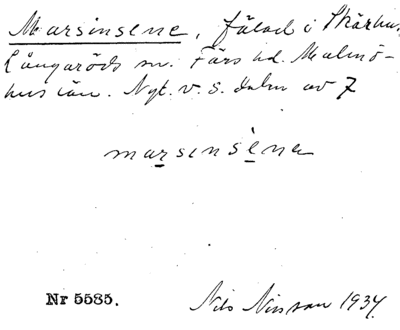 Marsinsene, fälad i Skärhus,
Långaröds sn. Färs hd. Malmö-
hus län. Nyt. v. s. delen av 7
marsinsena
Nr 5585.
Nils Nilsson 1934.